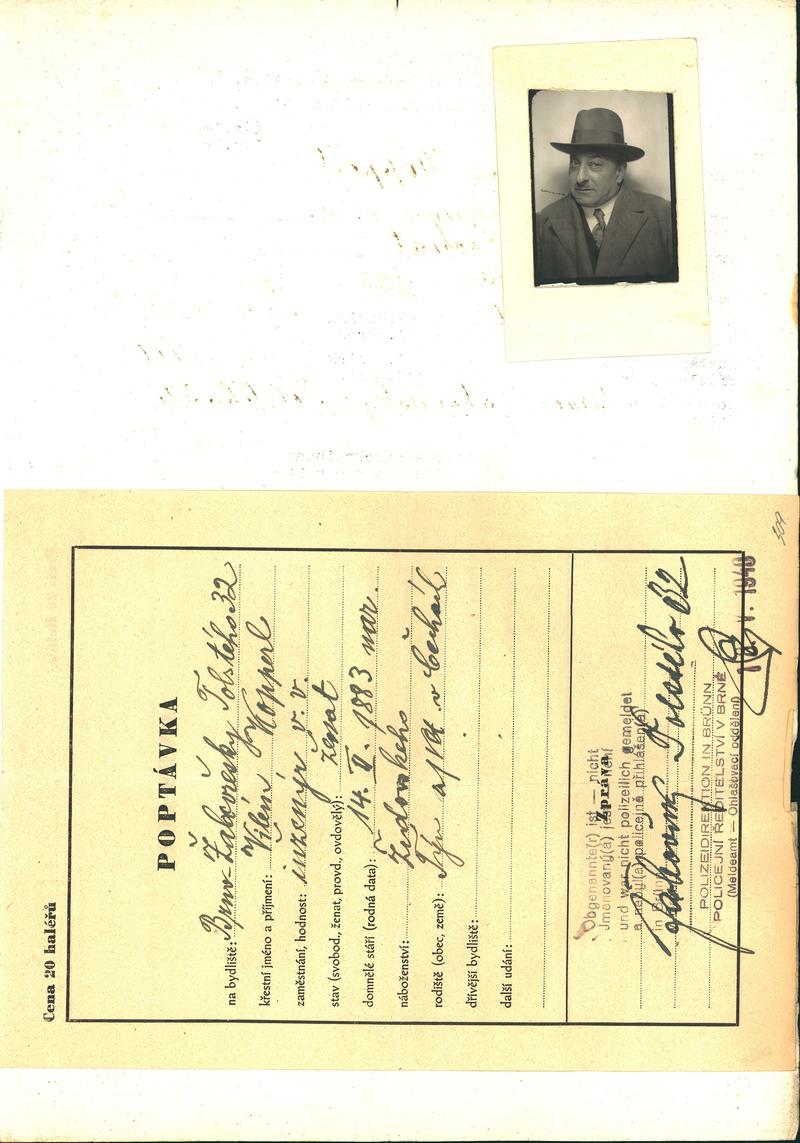 Cena 20 haléřů
POPTÁVKA
na bydliště: Brno-Žabovřesky Tolstého 32
křestní jméno a příjmení: Vilém Kopperl
zaměstnání, hodnost: inženýr v. v.
stav (svobod., ženat, provd., ovdovělý): ženat
domnělé stáří (rodná data): 14. II. 1883 nar.
náboženství: židovského
rodiště (obec, země): Týn a/Vlt. v Čechách
dřívější bydliště:
další udání:
Zpráva
Obgenannte(r) ist — nicht
Jmenovaný(á) je není
und war nicht polizeilich gemeldet
a nebyl(a) policejně přihlášena(á)
in Brünn
Tolstého 32
POLIZEIDIREKTION IN BRÜNN
POLICEJNÍ ŘEDITELSTVÍ V BRNĚ
(Meldeamt — Ohlašovací oddělení)
V. 1940